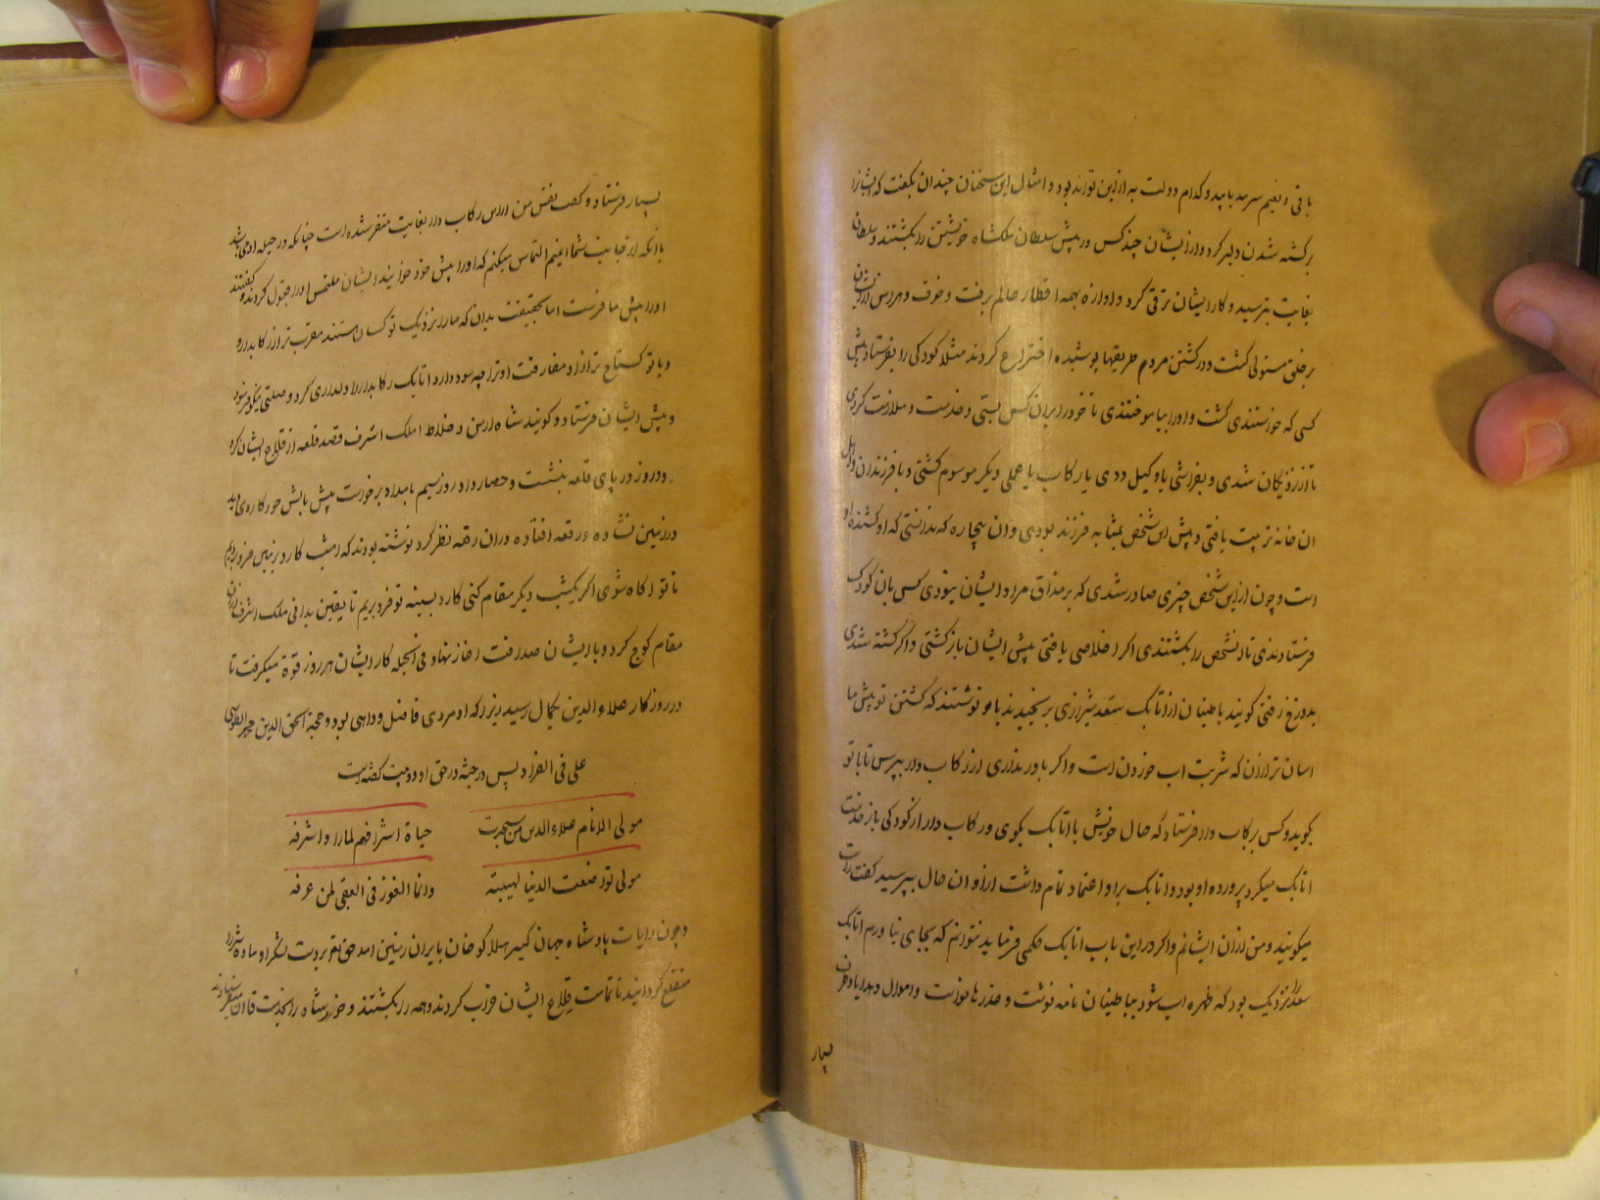 باقی و نعیم سرمد یابید و کدام دولت به ازین تواند بود و امثال این سخنان چندان بگفت که ایشانرا
بر کشته شدن دلیر کرد و ازیشان چند کس در پیش سلطان ملکشاه خویشتن را بکشتند و سلطان
بغایت بترسید و کار ایشان ترقی کرد و اوازه بهمه اقطار عالم برفت و خوف و هراس ازیشان
بر خلق مستولی گشت و در کشتن مردم طریقها پوشیده اختراع کردند مثلا کودکی را بفرستادی پیش
کسی که خواستندی کشت و اورا بیاموختندی تا خود را بران کس بستی و خدمت و ملازمت کردی
تا از نزدیکان شدی و بفراشی یا وکیل دری یا رکاب یا عملی دیگر موسوم گشتی و با فرزندان و اهل
ان خانه تربیت یافتی و پیش این شخص بمثابه فرزند بودی و ان بیچاره که ندانستی که او کشنده او
است و چون از این شخص چیزی صادر شدی که بر مذاق مراد ایشان نبودی کس بان کودک
فرستادندی تا ان شخص را بکشتندی اگر خلاصی یافتی پیش ایشان باز گشتی و اگر کشته شدی
بدوزخ رفتی گویند باطنیان از اتابک سعد شیرازی برنجیدند باو نوشتند که کشتن تو پیش ما
اسان تر ازان که شربت اب خوردن است و اگر باور نداری از رکاب دار بپرس تا با تو
بگوید و کس برکاب دار فرستاد که حال خویش با اتابک بگوی و رکاب دار از کودکی باز خدمت
اتابک میکرد پرورده او بود و اتابک برو اعتماد تمام داشت ازو ان حال بپرسید گفت راست
میگویند و من ازان ایشانم و اگر در این باب اتابک حکمی فرماید نتوانم که بجای نیاورم اتابک
سعد را نزدیک بود که زهره اب شود بباطنیان نامه نوشت و عذرها خواست و اموال و هدایا و ظرف
بسیار
بسیار فرستاد و گفت نفس من ازاین رکاب دار بغایت متنفر شده است چنانکه در حیله او می باشد
بانکه از جانب شما ایمنم التماس میکنم که اورا پیش خود خوانید ایشان ملتمس اورا قبول کردند و گفتند
اورا پیش ما فرست اما بحقیقت بدان که مارا نزدیک تو کسان هستند مقرب تر از رکابدار و
و با تو گستاخ تر ازاو مفارقت او ترا چه سود دارد اتابک رکابدار را دلداری کرد و صلتی نیکو فرمود
و پیش ایشان فرستاد و گویند شاه ارمن و خلاط املک اشرف قصد قلعه از قلاع ایشان کرد
و دو روز در پای قلعه بنشست و حصار داد روز سیم بامداد برخواست پیش بالش خود کاردی دید
در زمین نشانده و رقعه افتاده دران رقعه نظر کرد نوشته بودند که امشب کارد بزمین فرو بردیم
تا تو اگاه شوی اگر یکشب دیگر مقام کنی کارد بسینه تو فرو بریم تا یقین بدانی ملک اشرف ازان
مقام کوچ کرد و با ایشان صداقت اغاز نهاد فی الجمله کار ایشان هر روز قوة میگرفت تا
در روزگار علاء الدین بکمال رسید زیرا که او مردی فاضل و داهی بود و حجة الحق الدین محمد الطوسی
علی فی الفرادیس درجته در حق او دو بیت گفته است
مولی الانام علاء الدین من سجدت جباة اشرافهم لما راوا شرفه
مولی تواضعت الدنیا لهیبته وانما الفوز فی العقبی لمن عرفه
و چون رایات پادشاه جهان گیر هلاکو خان بایران زمین امد حق تعالی بر دست لشکر او ماده شر را
منقطع گردانید تا تمامت قلاع ایشان خراب کردند و همه را بکشتند و خورشاه را بخدمت قاان بفرستادند